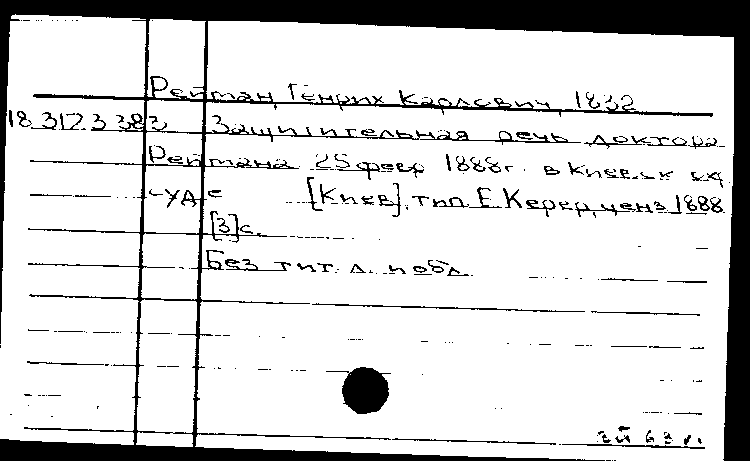 Рейтман, Генрих Карлович, 1832
18.312.3 383 Защитительная речь доктора
Рейтмана 25 февр 1888г. в Киевск
суде [Киев], тип Е. Керер, ценз 1888
[3]с.
Без тит. л. и обл.